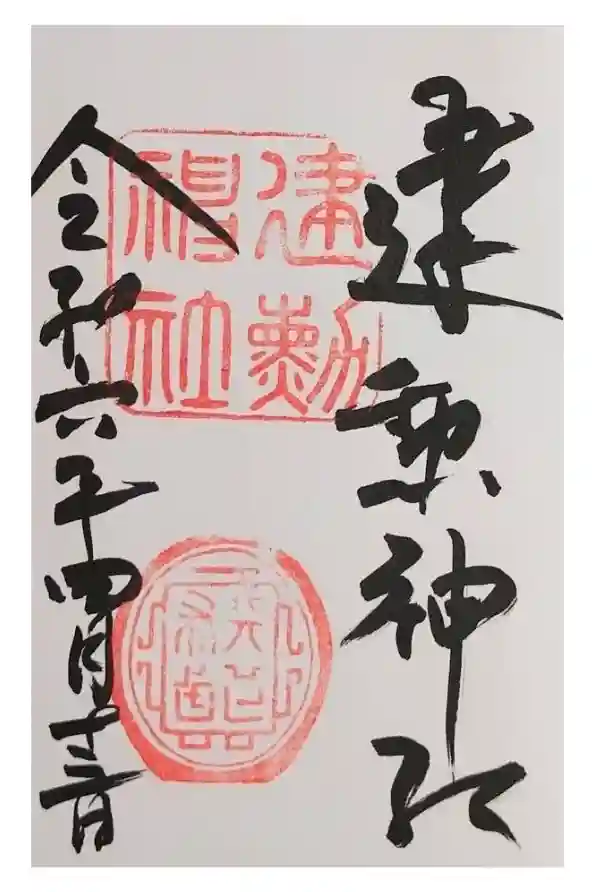 建勲神社
建勲神社
令和六年四月十三日